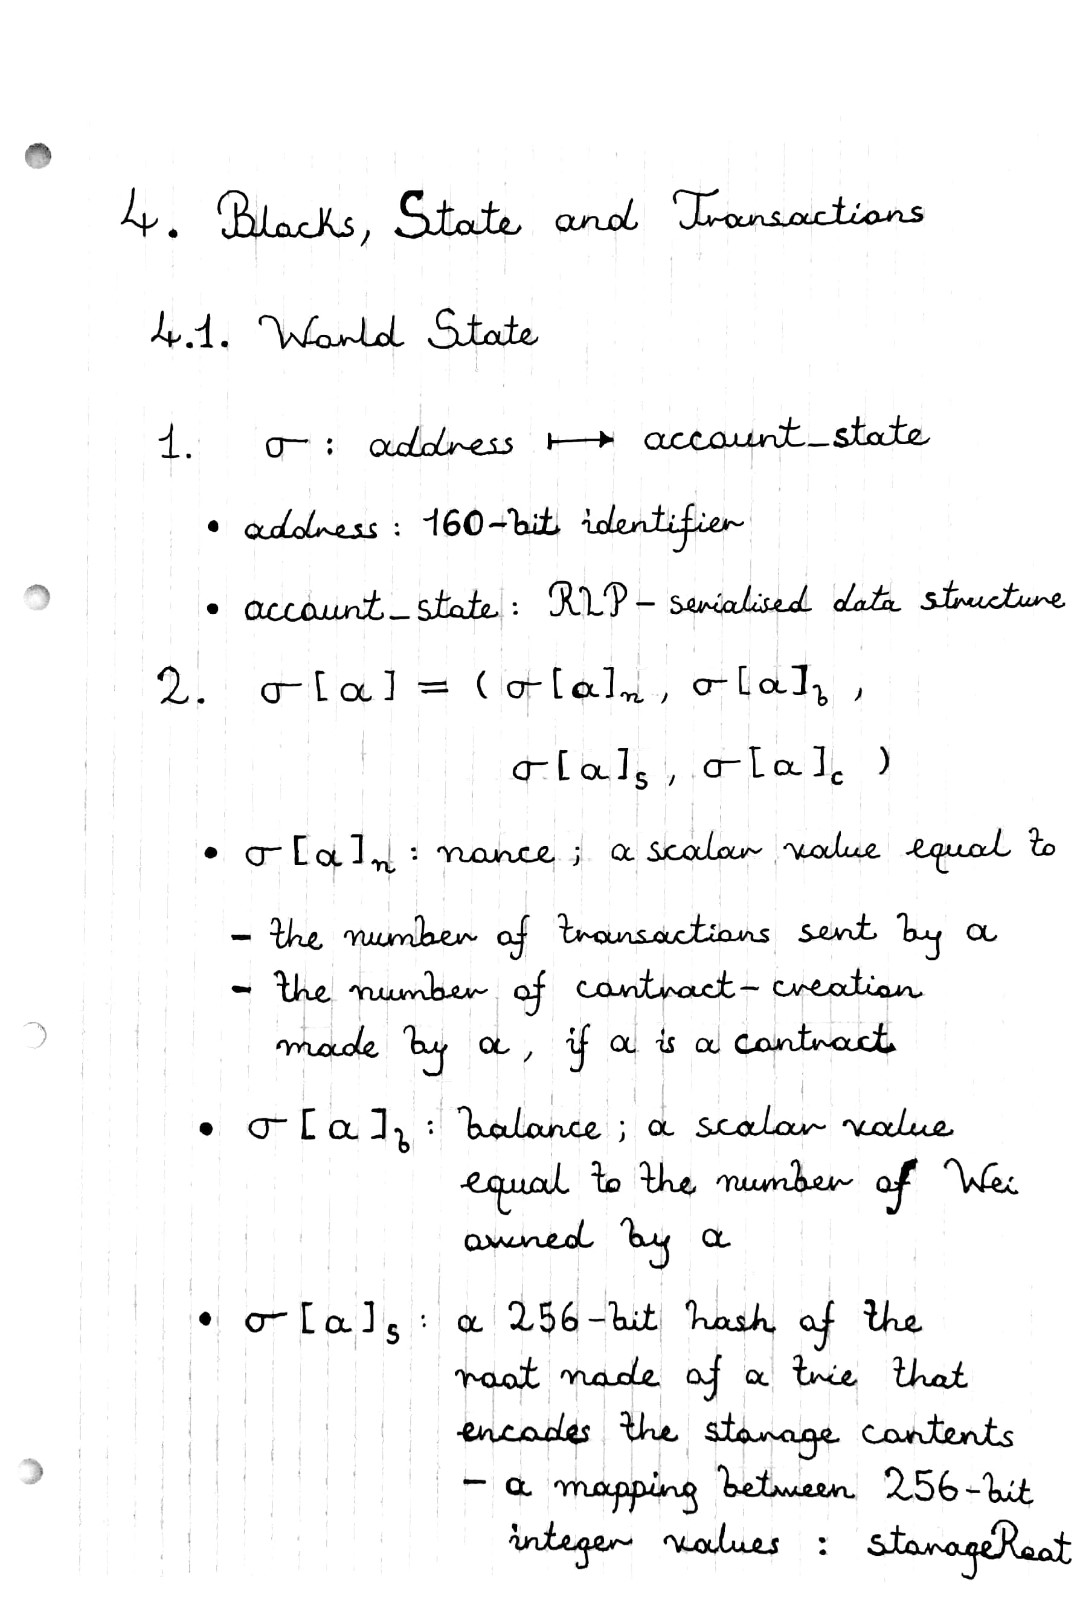 4. Blocks, State and Transactions
4.1. World State
1. σ : address ↦ account_state
• address : 160-bit identifier
• account_state : RLP - serialised data structure
2. σ[a] = ( σ[a]n , σ[a]b ,
σ[a]s , σ[a]c )
• σ[a]n : nonce ; a scalar value equal to
- the number of transactions sent by a
- the number of contract-creation
made by a , if a is a contract
• σ[a]b : balance ; a scalar value
equal to the number of Wei
owned by a
• σ[a]s : a 256-bit hash of the
root node of a trie that
encodes the storage contents
- a mapping between 256-bit
integer values : storageRoot